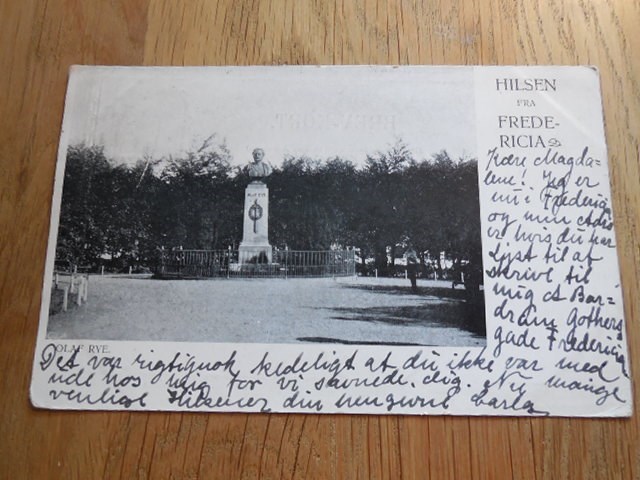 HILSEN
FRA
FREDE-
RICIA
Kære Magda-
lene! Jeg er
nu i Fredericia
og min Adres
er hvis du har
lyst til at
skrive til
mig et Bar-
dram Gothers
gade Fredericia
OLAF RYE.
Det var rigtignok kedeligt at du ikke var med
ude hos for vi savnede dig. Nu mange
venlige Hilsener din hengivne